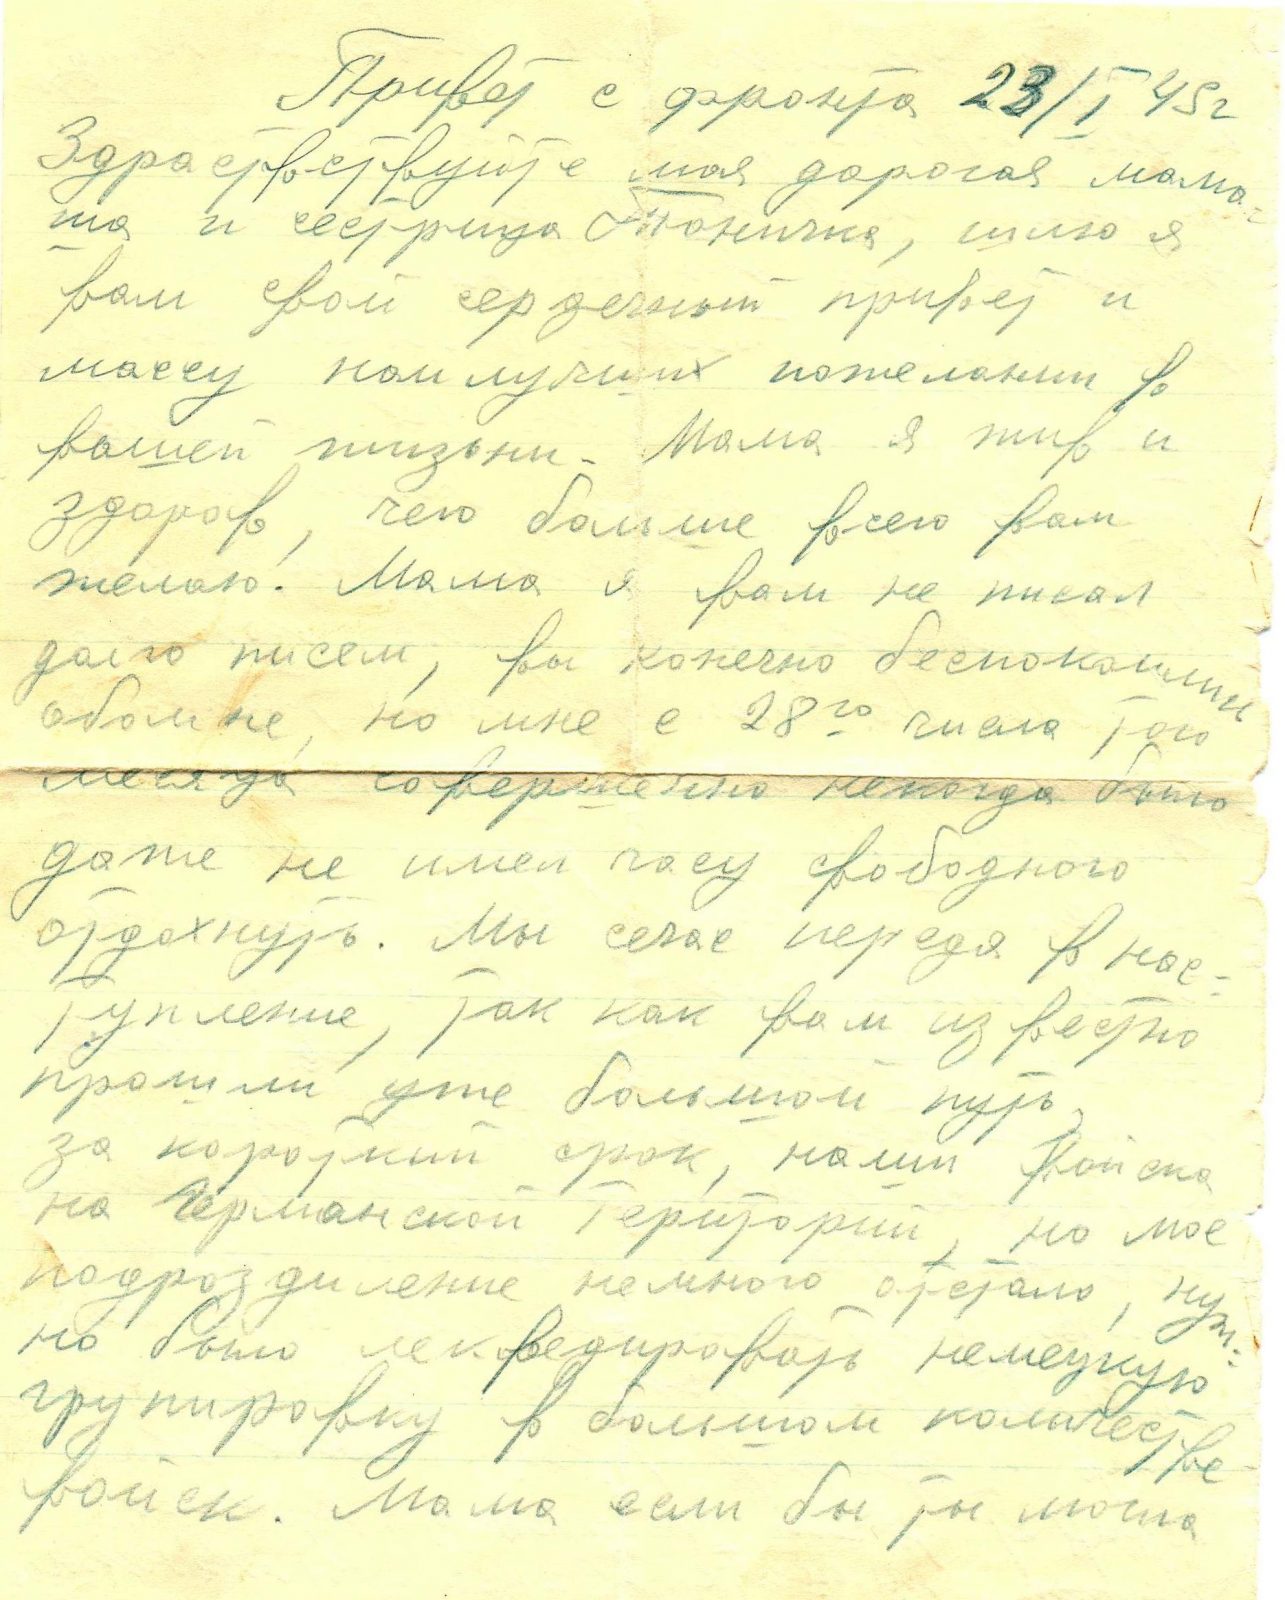 Привет с фронта 23/I 45г
Здраствствуйте моя дорогая мама-
ша и сестрица Тоничка, шлю я
вам свой сердечный привет и
массу наилучших пожелании в
вашей жизьни. Мама я жив и
здоров, чего больше всего вам
желаю. Мама я вам не писал
долго писем, вы конечно беспокоились
обомне, но мне с 28го числа того
месяца совершенно некогда было
даже не имел часу свободного
отдохнуть. Мы сечас передя в нас-
тупление, так как вам известно
прошли уже большой путь,
за короткий срок, наши войска
на Германской Територий, но мое
подрозделение немного отстало, нуж-
но было лекведировать немецкую
групировку в большом количестве
войск. Мама если бы ты могла